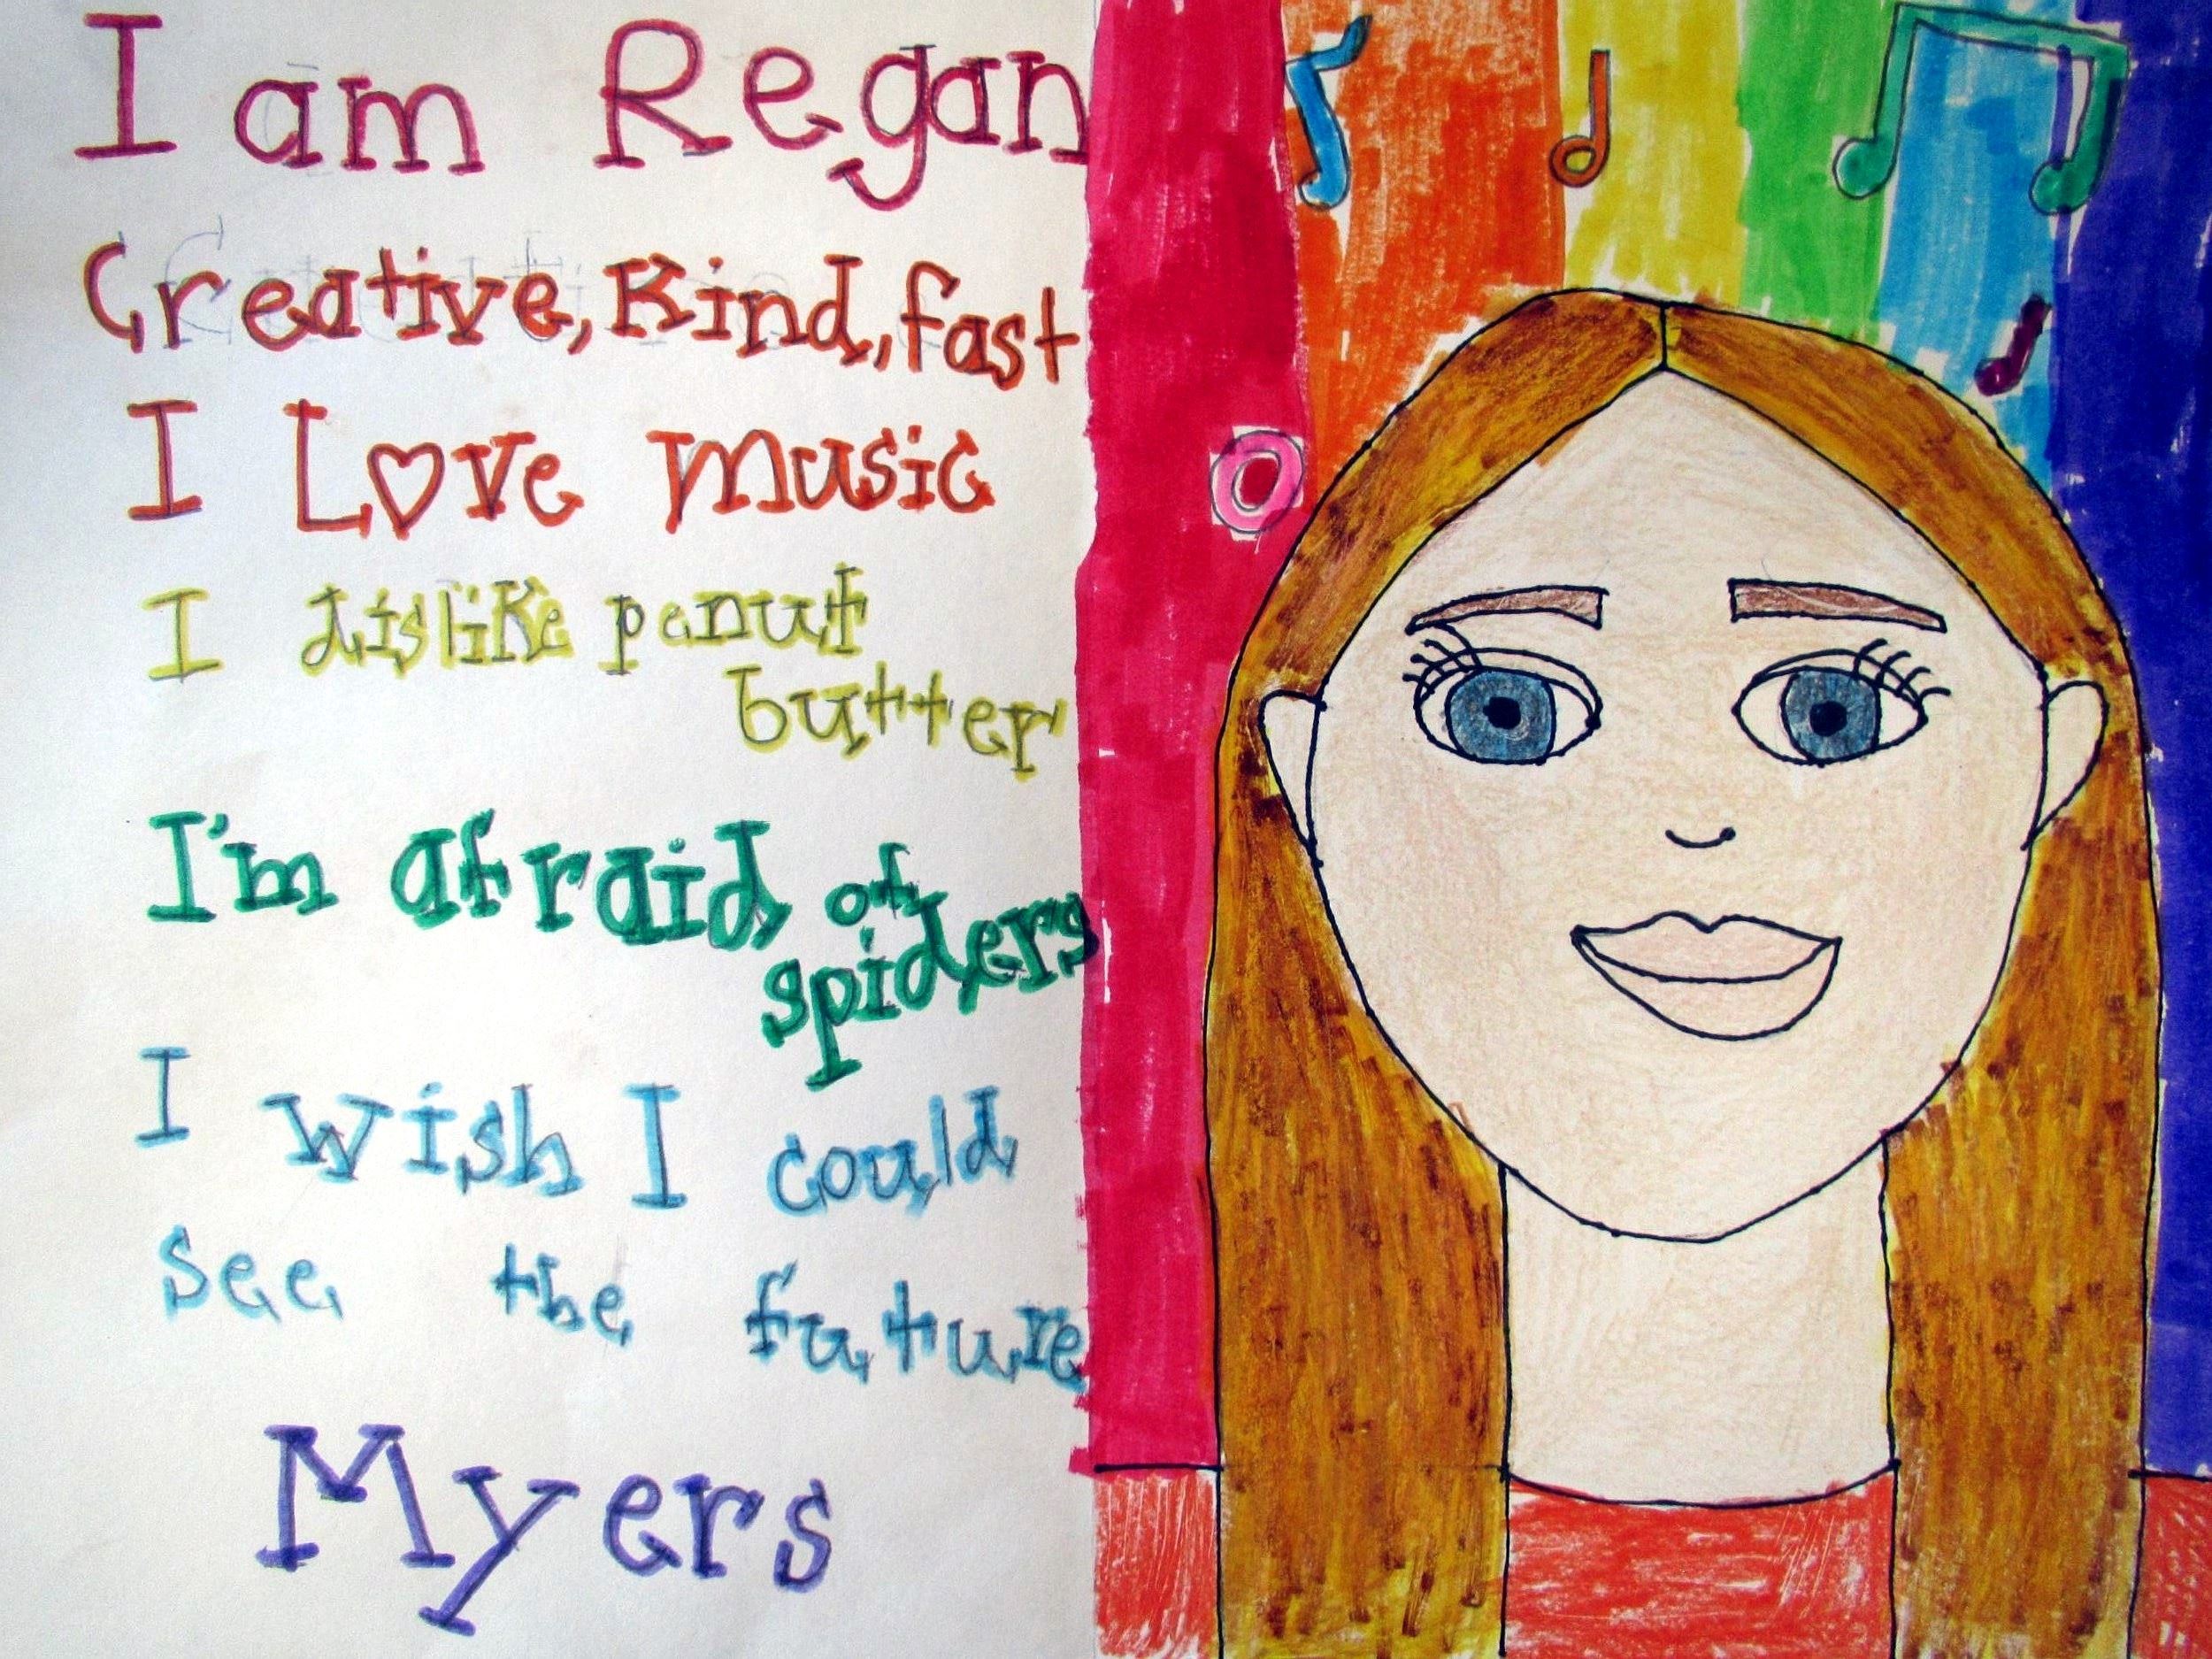 I am Regan
Creative, Kind, fast
I Love music
I dislike penut
butter
I'm afraid of
spiders
I wish I could
see the future
Myers